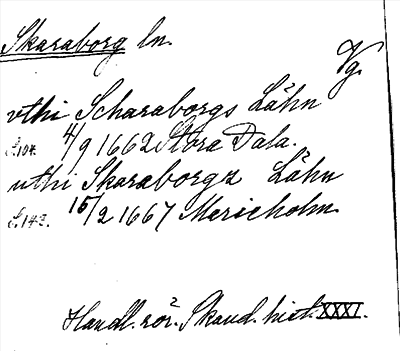 Skaraborg ln.
Vg.
vthi Scharaborgs Lähn
s. 104. 4/9 1662 Stora Dala.
uthi Skaraborgz Lähn
s. 142. 15/2 1667 Mericholm
Handl. rör. Skand. hist. XXXI.